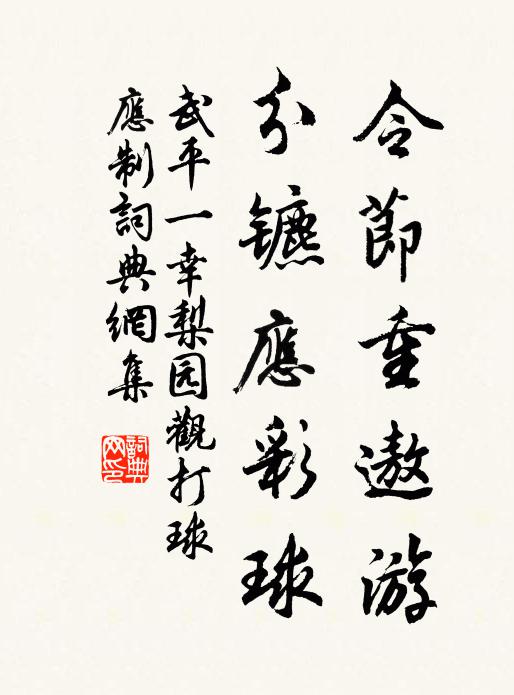 令節重遨游
分鑣應彩球
武平一幸梨园觀打球
應制詞典網集
詞典網印